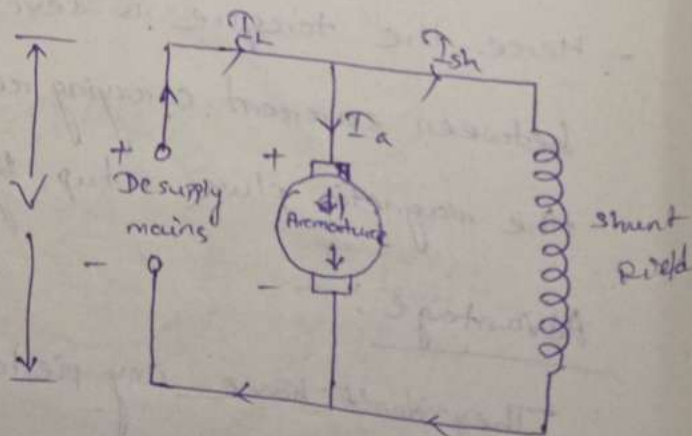 I_L
I_sh
I_a
+
+
V
Dc supply
mains
Armature
-
-
Shunt
Field